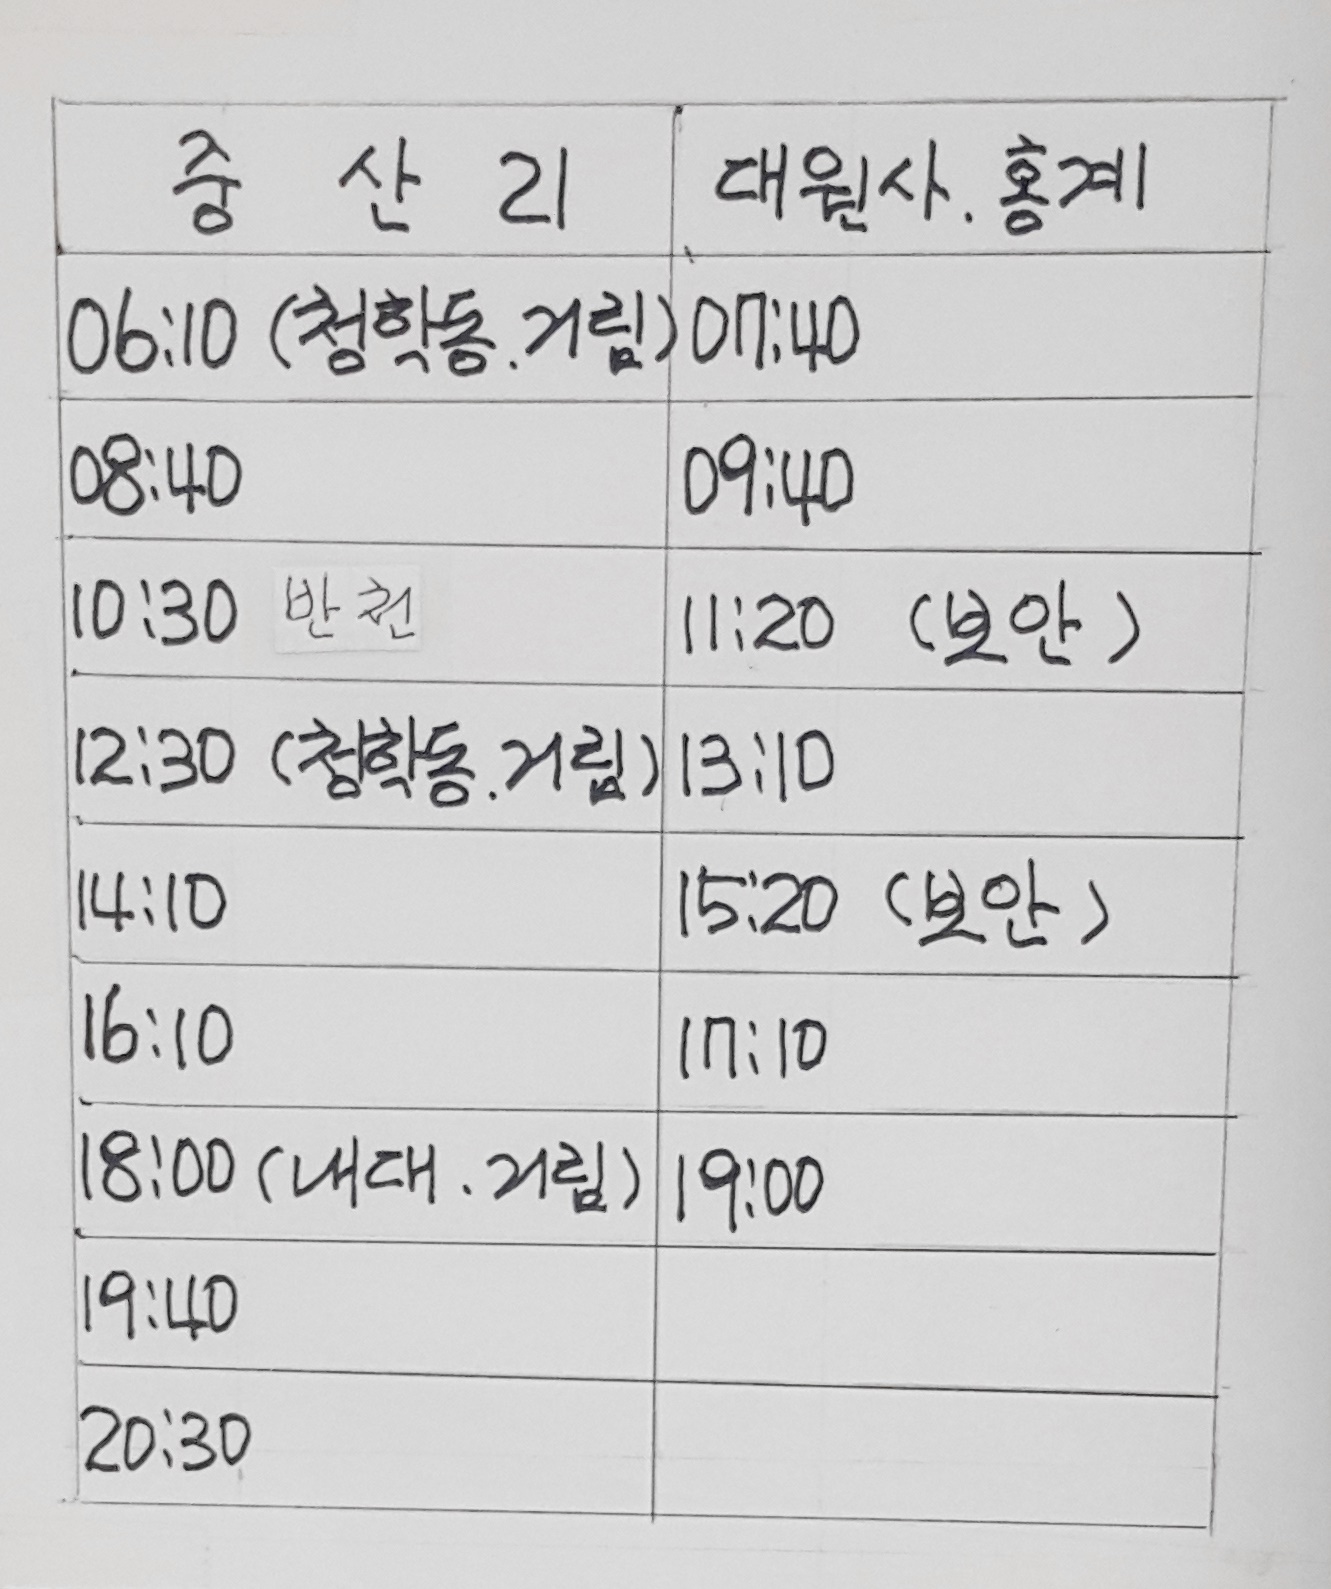 중 산 리 대원사. 홍계
06:10 (청학동.거림) 07:40
08:40 09:40
10:30 반천 11:20 (보안)
12:30 (청학동.거림) 13:10
14:10 15:20 (보안)
16:10 17:10
18:00 (내대.거림) 19:00
19:40
20:30